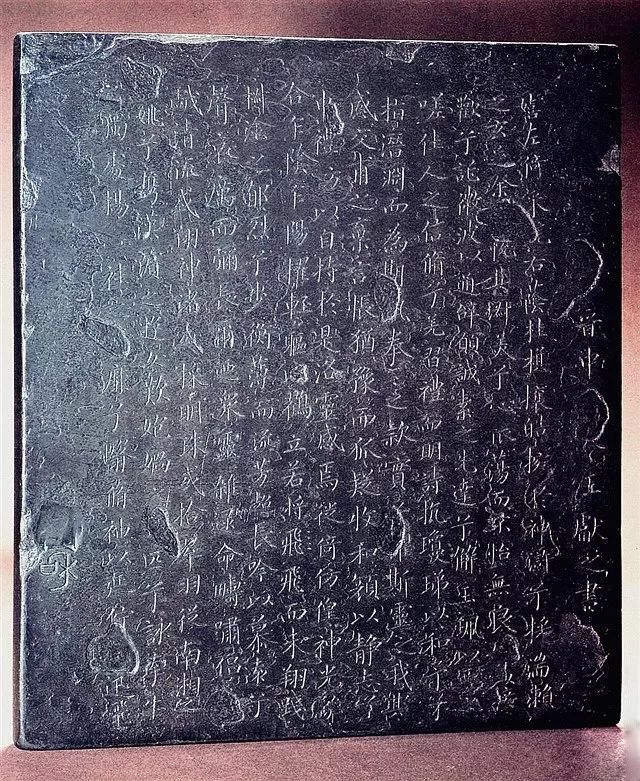 晉中令王獻之書
嬉左倚采旄右蔭桂旗攘皓捥於神滸兮採湍瀨
之玄芝余悅其淑美兮心振蕩而不怡無良媒以接
歡兮託微波以通辭願誠素之先達兮解玉珮以要之
嗟佳人之信脩兮羌習禮而明詩抗瓊珶以和予兮
指潛淵而為期執拳之款實兮懼斯靈之我欺
感交甫之棄言悵猶豫而狐疑收和顏以靜志兮
申禮防以自持於是洛靈感焉徙倚仿偟神光離
合乍陰乍陽擢輕軀以鶴立若將飛飛而未翔踐
椒塗之郁烈兮步衡薄而流芳超長吟以慕遠兮
聲哀厲而彌長爾迺眾靈雜遝命疇嘯侶
戲清流或翔神渚或採明珠或拾翠羽從南湘之
姚兮攜漢濱之遊女歎炮媧匹兮詠牽牛
獨處揚袿兮翳脩袖以延佇迅
永